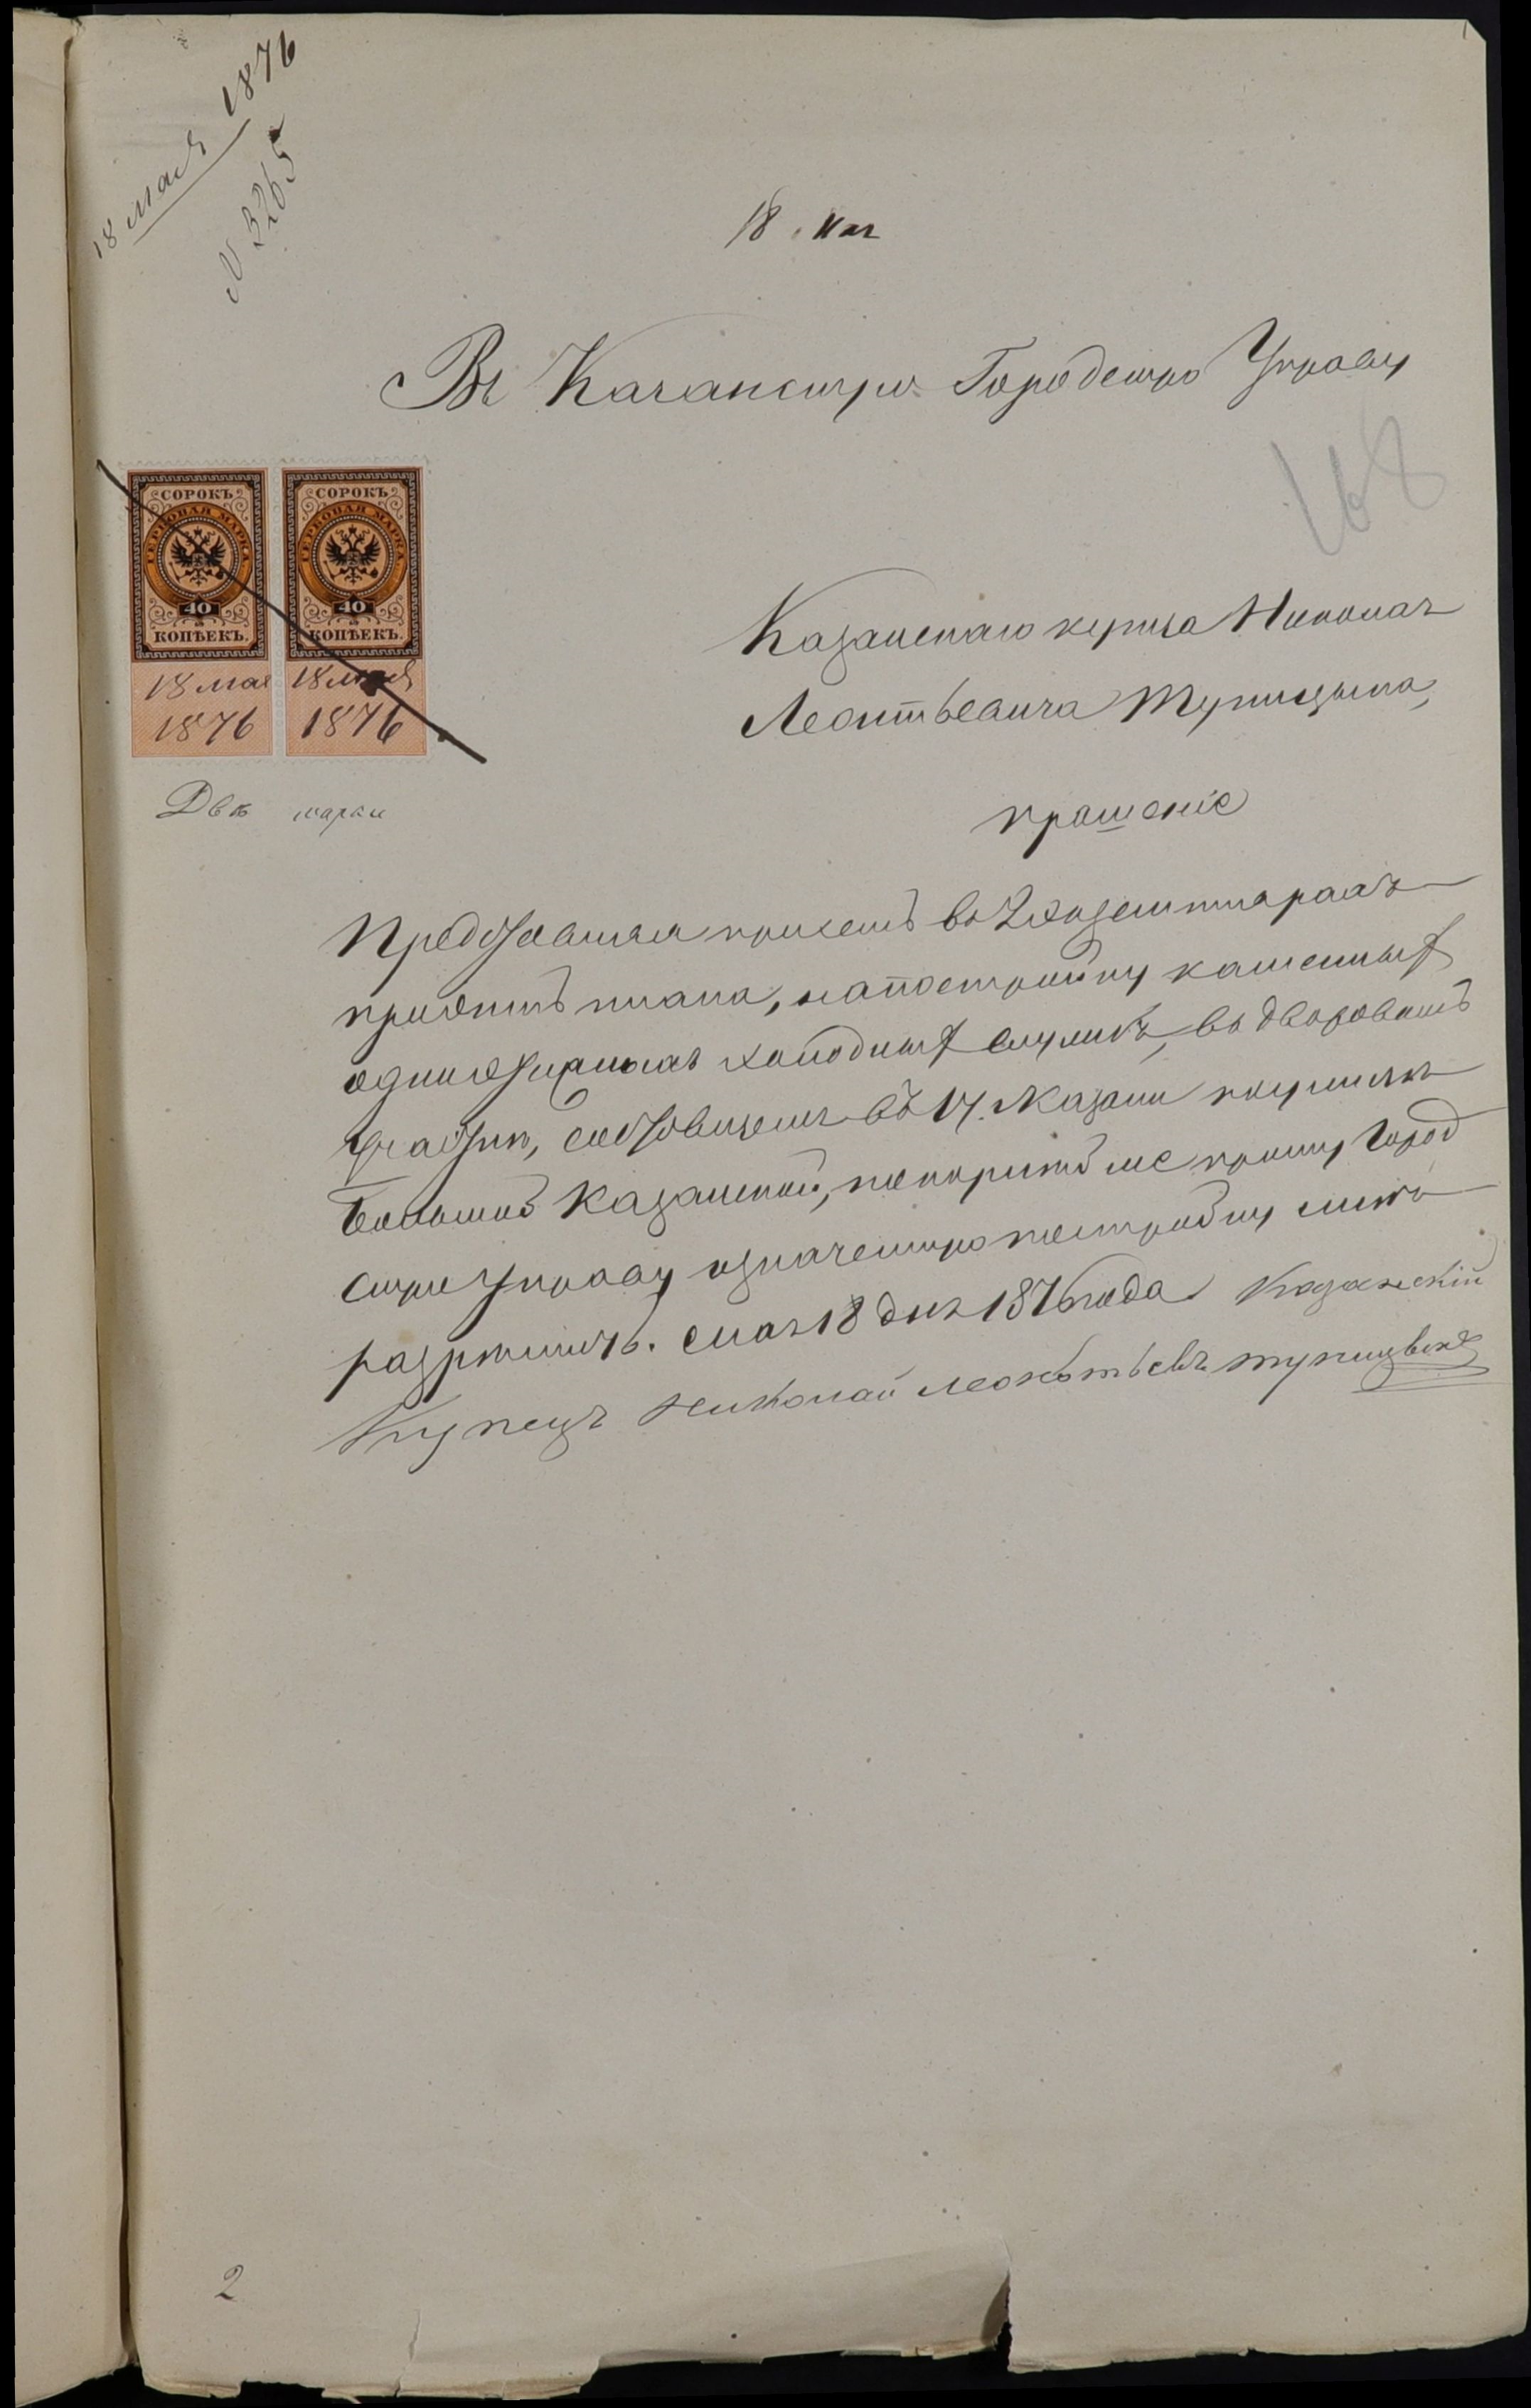 18 мая 1876
№ 3265
18 мая
Въ Казанскую Городскую Управу
168
СОРОКЪ
ГЕРБОВАЯ МАРКА
40
КОПѢЕКЪ.
18 мая
1876
СОРОКЪ
ГЕРБОВАЯ МАРКА
40
КОПѢЕКЪ.
18 мая
1876
Двѣ марки
Казанскаго купца Николая
Леонтьевича Тупицына,
прошеніе
Представляя при семъ въ 2 экземплярахъ
проэктъ плана, на постройку каменныхъ
одноэтажныхъ холодныхъ службъ, въ дворовомъ
участкѣ, состоящемъ въ г. Казани по улицѣ
Большой Казанской, покорнѣйше прошу Город
скую Управу означенную постройку мнѣ
разрѣшить. мая 18 дня 1876 года Казанскій
Купецъ Николай Леонтьевъ
2